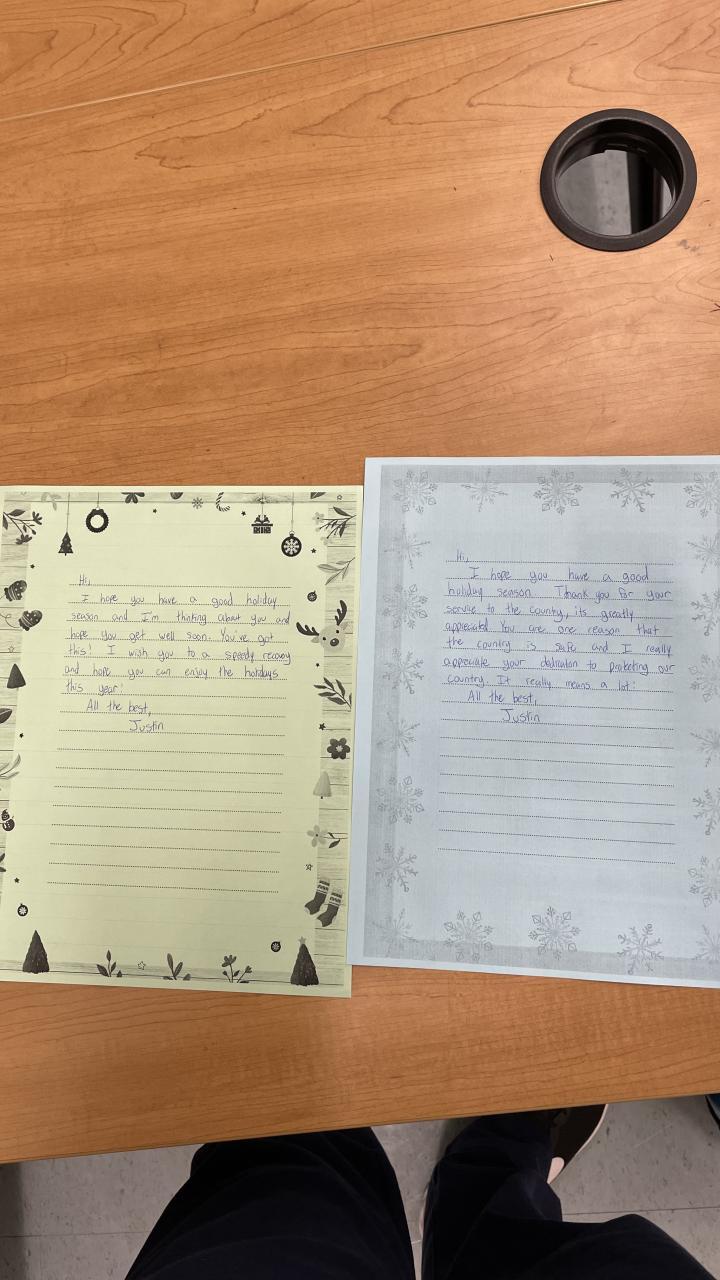 Hi,
I hope you have a good holiday
season and I'm thinking about you and
hope you get well soon. You've got
this! I wish you to a speedy recovery
and hope you can enjoy the holidays
this year!
All the best,
Justin
Hi,
I hope you have a good
holiday season. Thank you for your
service to the country, its greatly
appreciated. You are one reason that
the country is safe and I really
appreciate your dedication to protecting our
country. It really means a lot!
All the best,
Justin